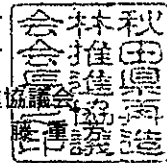 秋田県再造
林推進協議
会会長之印
協議会
藤 重